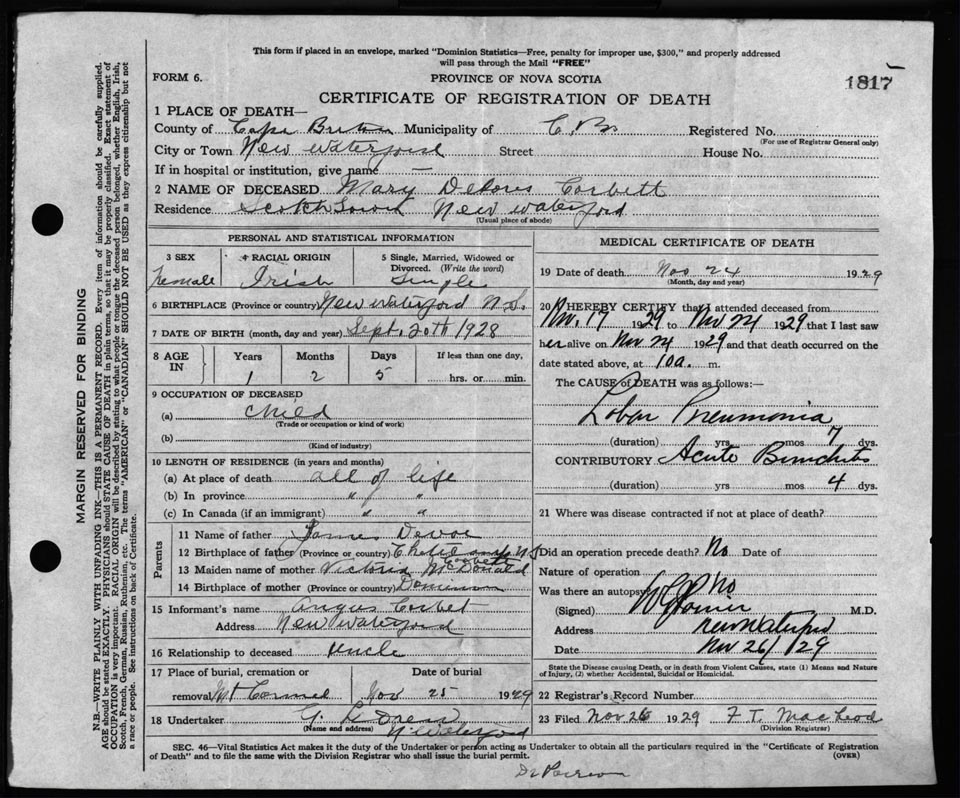 This form if placed in an envelope, marked "Dominion Statistics—Free, penalty for improper use, $300," and properly addressed
will pass through the Mail "FREE"
FORM 6.
PROVINCE OF NOVA SCOTIA
1817
CERTIFICATE OF REGISTRATION OF DEATH
1 PLACE OF DEATH—
County of Cape Breton Municipality of C. B. Registered No.
(For use of Registrar General only)
City or Town New Waterford Street House No.
If in hospital or institution, give name —
2 NAME OF DECEASED Mary Delores Corbett
Residence Scotch Town New Waterford
(Usual place of abode)
PERSONAL AND STATISTICAL INFORMATION
3 SEX 4 RACIAL ORIGIN 5 Single, Married, Widowed or
Divorced. (Write the word)
Female Irish Single
6 BIRTHPLACE (Province or country) New Waterford N.S.
7 DATE OF BIRTH (month, day and year) Sept. 20th 1928
8 AGE IN Years Months Days If less than one day,
1 2 5 hrs. or min.
9 OCCUPATION OF DECEASED
(a) Child
(Trade or occupation or kind of work)
(b)
(Kind of industry)
10 LENGTH OF RESIDENCE (in years and months)
(a) At place of death all of life
(b) In province " "
(c) In Canada (if an immigrant) " "
Parents
11 Name of father James Devoe
12 Birthplace of father (Province or country) N.S.
Corbett
13 Maiden name of mother Victoria McDonald
14 Birthplace of mother (Province or country) Dominion
15 Informant's name Angus Corbet
Address New Waterford
16 Relationship to deceased Uncle
17 Place of burial, cremation or Date of burial
removal Mt Carmel Nov 25 1929
18 Undertaker G.
(Name and address) N Waterford
MEDICAL CERTIFICATE OF DEATH
19 Date of death Nov 24 1929
(Month, day and year)
20 I HEREBY CERTIFY that I attended deceased from
Nov. 17 1929 to Nov 24 1929 that I last saw
her alive on Nov 24 1929 and that death occurred on the
date stated above, at 10 a. m.
The CAUSE of DEATH was as follows:—
Lobar Pneumonia
(duration) yrs mos 7 dys.
CONTRIBUTORY Acute Bronchitis
(duration) yrs mos 4 dys.
21 Where was disease contracted if not at place of death?
Did an operation precede death? No Date of
Nature of operation
Was there an autopsy? No
(Signed) M.D.
Address New Waterford
Date Nov 26/29
State the Disease causing Death, or in death from Violent Causes, state (1) Means and Nature
of Injury, (2) whether Accidental, Suicidal or Homicidal.
22 Registrar's Record Number
23 Filed Nov 26 1929 F. T. MacLeod
(Division Registrar)
SEC. 46—Vital Statistics Act makes it the duty of the Undertaker or person acting as Undertaker to obtain all the particulars required in the "Certificate of Registration
of Death" and to file the same with the Division Registrar who shall issue the burial permit.
(OVER)
MARGIN RESERVED FOR BINDING
N.B.—WRITE PLAINLY WITH UNFADING INK—THIS IS A PERMANENT RECORD. Every item of information should be carefully supplied.
AGE should be stated EXACTLY. PHYSICIANS should STATE CAUSE OF DEATH in plain terms, so that it may be properly classified. Exact statement of
OCCUPATION is very important. RACIAL ORIGIN will be described by stating to what people or tongue the deceased person belonged, whether English, Irish,
Scotch, French, German, Russian, Ruthenian, etc. The terms "AMERICAN" or "CANADIAN" SHOULD NOT BE USED as they express citizenship but not
a race or people. See instructions on back of Certificate.